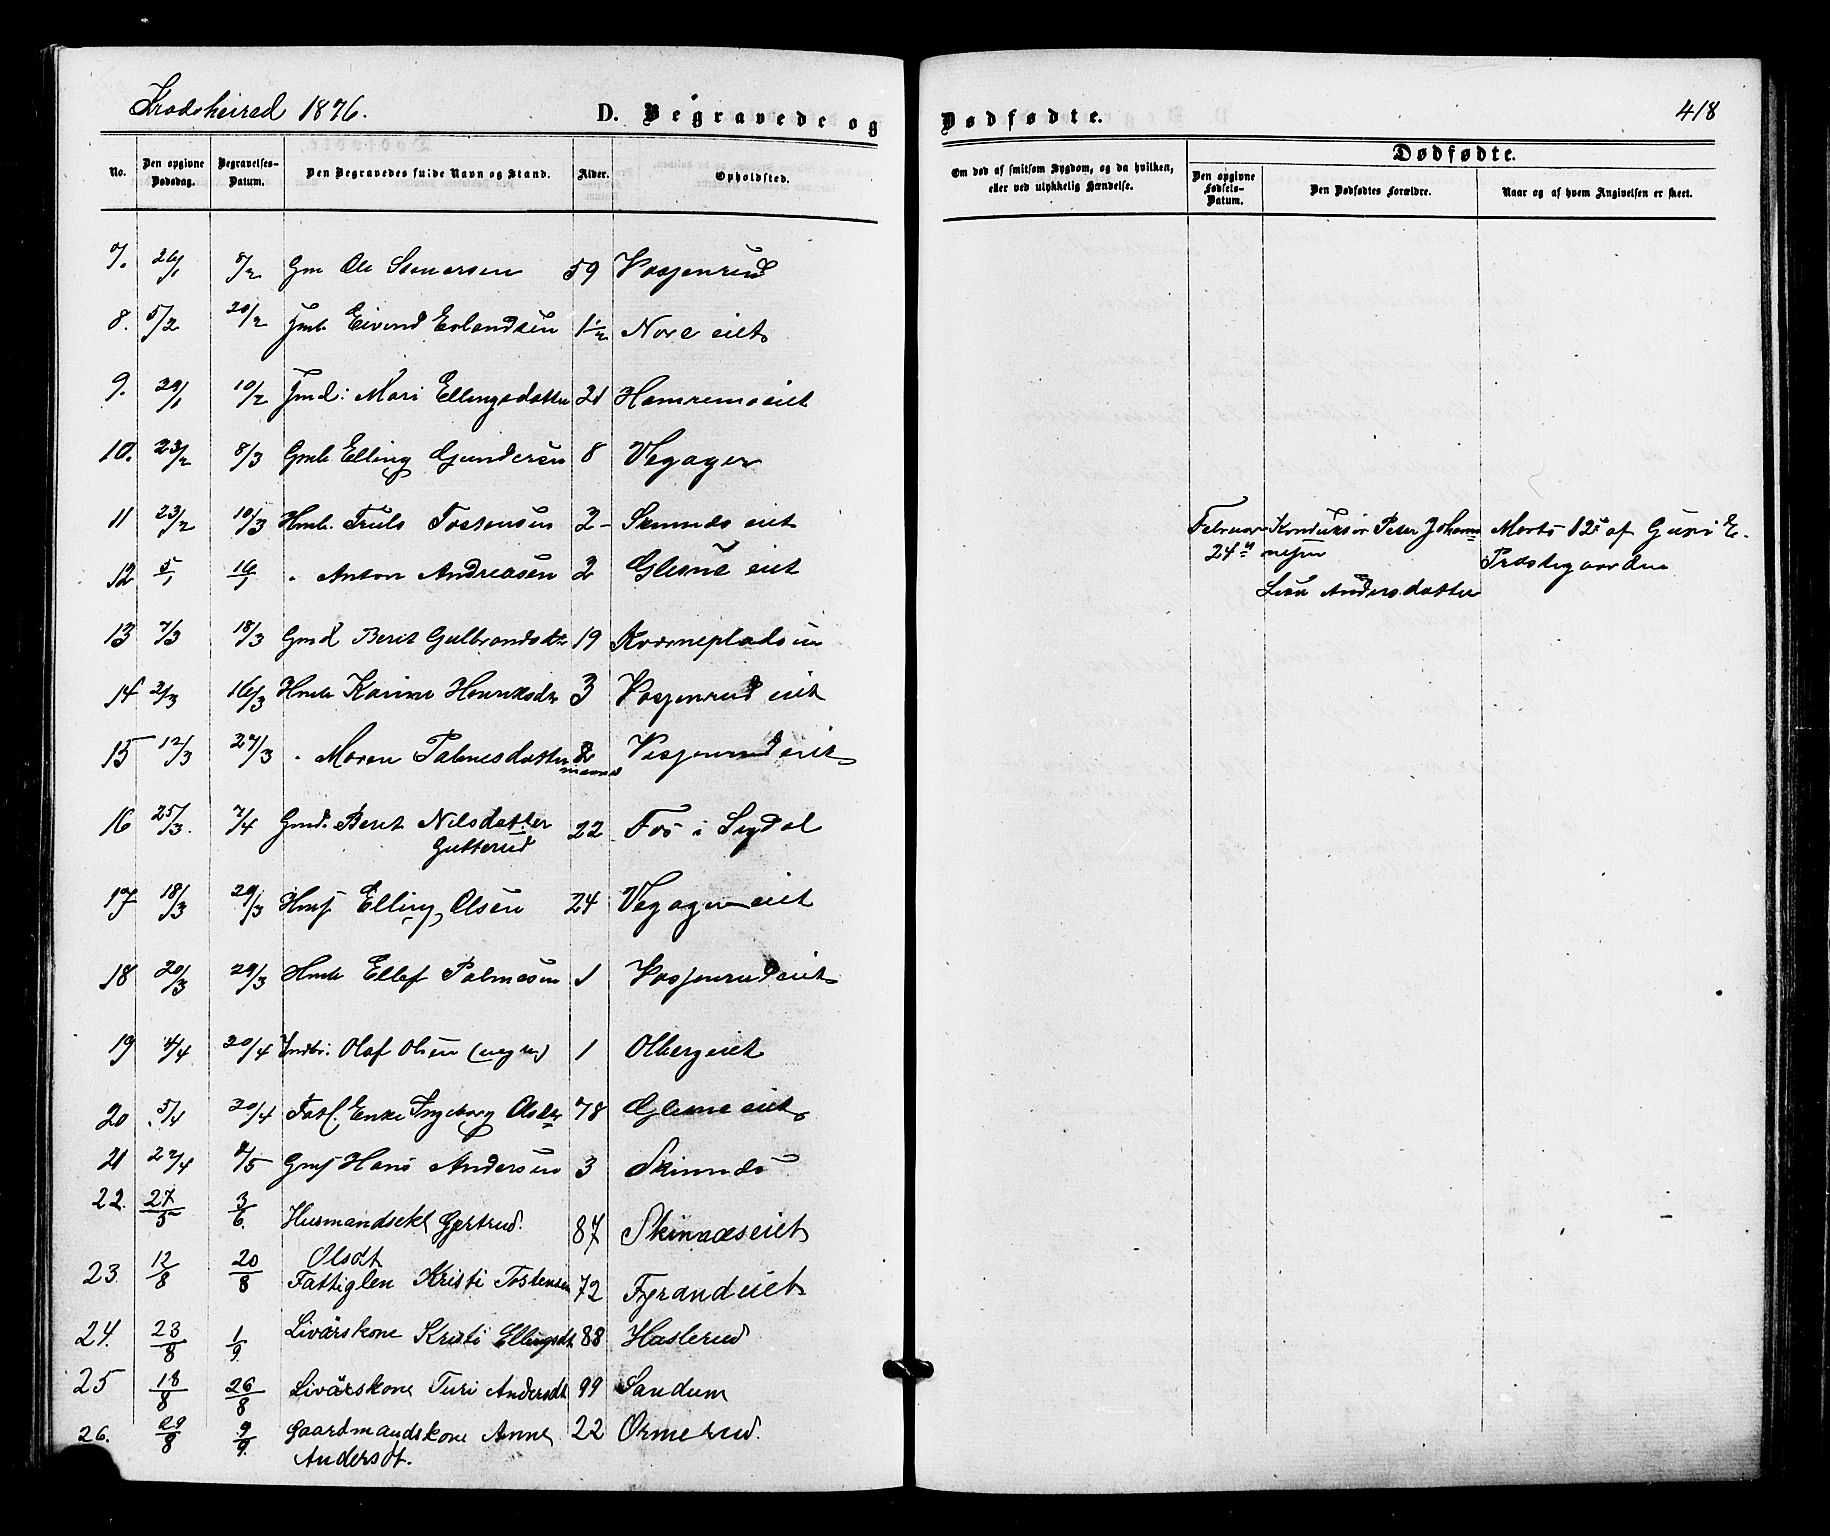 Krødsherred 1876. D. Begravede og Dødfødte. 418
No. Den opgivne Dødsdag. Begravelses-Datum. Den Begravedes fulde Navn og Stand. Alder. Opholdsted. Om død af smitsom Sygdom, og da hvilken, eller ved ulykkelig Hændelse. Dødfødte.
Den opgivne Fødsels-Datum. Den Dødfødtes Forældre. Naar og af hvem Angivelsen er skeet.
7. 26/1 8/2 Gm Ole Stenersen 59
8. 5/2 20/2 Eivind Erlandsen 1 1/2 Nore eiet
9. 29/1 10/2 Gmd: Mari Ellingsdatter 21 Hamremoeiet
10. 23/2 8/3 Gmb Elling Gundersen 8 Vegager
11 23/2 10/3 Hmb. Truls Tostensen 2 - Skinnes eiet
12 5/1 16/1 " Anton Andreasen 2 Glesne eiet
13 7/3 18/3 Gmd Berit Gulbrandsdtr 19 Kværnepladsen
14 2/3 16/3 Hmb Karine Henriksdtr 3 eiet
15 12/3 27/3 " Maren Palmesdatter 2 maaned eiet
16 25/3. 7/4 Gmd. Berit Nilsdatter 22 Fos i Sigdal
Gutterud
17 18/3 29/3 Hmf Elling Olsen 24 Vegagereiet
18 20/3 29/3 Hmb Ellef Palmesen 1
19 4/4 20/4 Indb: Olaf Olsen 1 Olbergeiet
20 5/4 20/4 Fatl. Enke Ingeborg Olsdtr 78 Glesne eiet
21 22/4 9/5 Gmf Hans Andersen 3 Skinnes
22. 27/5 3/6. Husmandsekl Gjertrud. 87 Skinnæseiet
Olsdt
23. 12/8 20/8 Fattiglen Kristi Tostensen 72 Fyrandeiet
24. 23/8 1/9. Livårskone Kristi Ellingsdt 88 Haslerud
25 18/8 26/8 Livårskone Turi Andersdt 99 Sandum
26. 29/8 9/9. Gaardmandskone Anne 22 Ormerud.
Andersdt.
Februar Konduktør Peter Johan= Marts 12te af Guri E.
24de nesen Præstegaarden
Lise Andersdatter